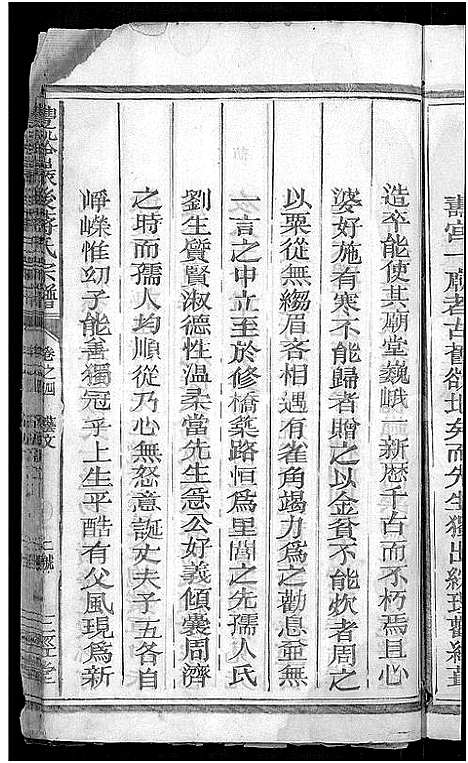 壽宮一廟者古舊欲圮矣而先生獨出
造卒能使其廟堂巍峨一新歷千百而不朽焉且心
婆好施有寒不能歸者贈之以金貧不能炊者周之
以粟從無縐眉吝相遇有雀角竭力為之勸息並無
一言之中立至於修橋甃路恒為里閭之先孺人氏
劉生質賢淑德性溫柔當先生急公好義傾囊周濟
之時而孺人均順從乃心無怒意誕丈夫子五各自
崢嶸惟幼子能善獨冠乎上生平酷有父風現為新
氏宗譜
卷之四 藝文
三徑堂